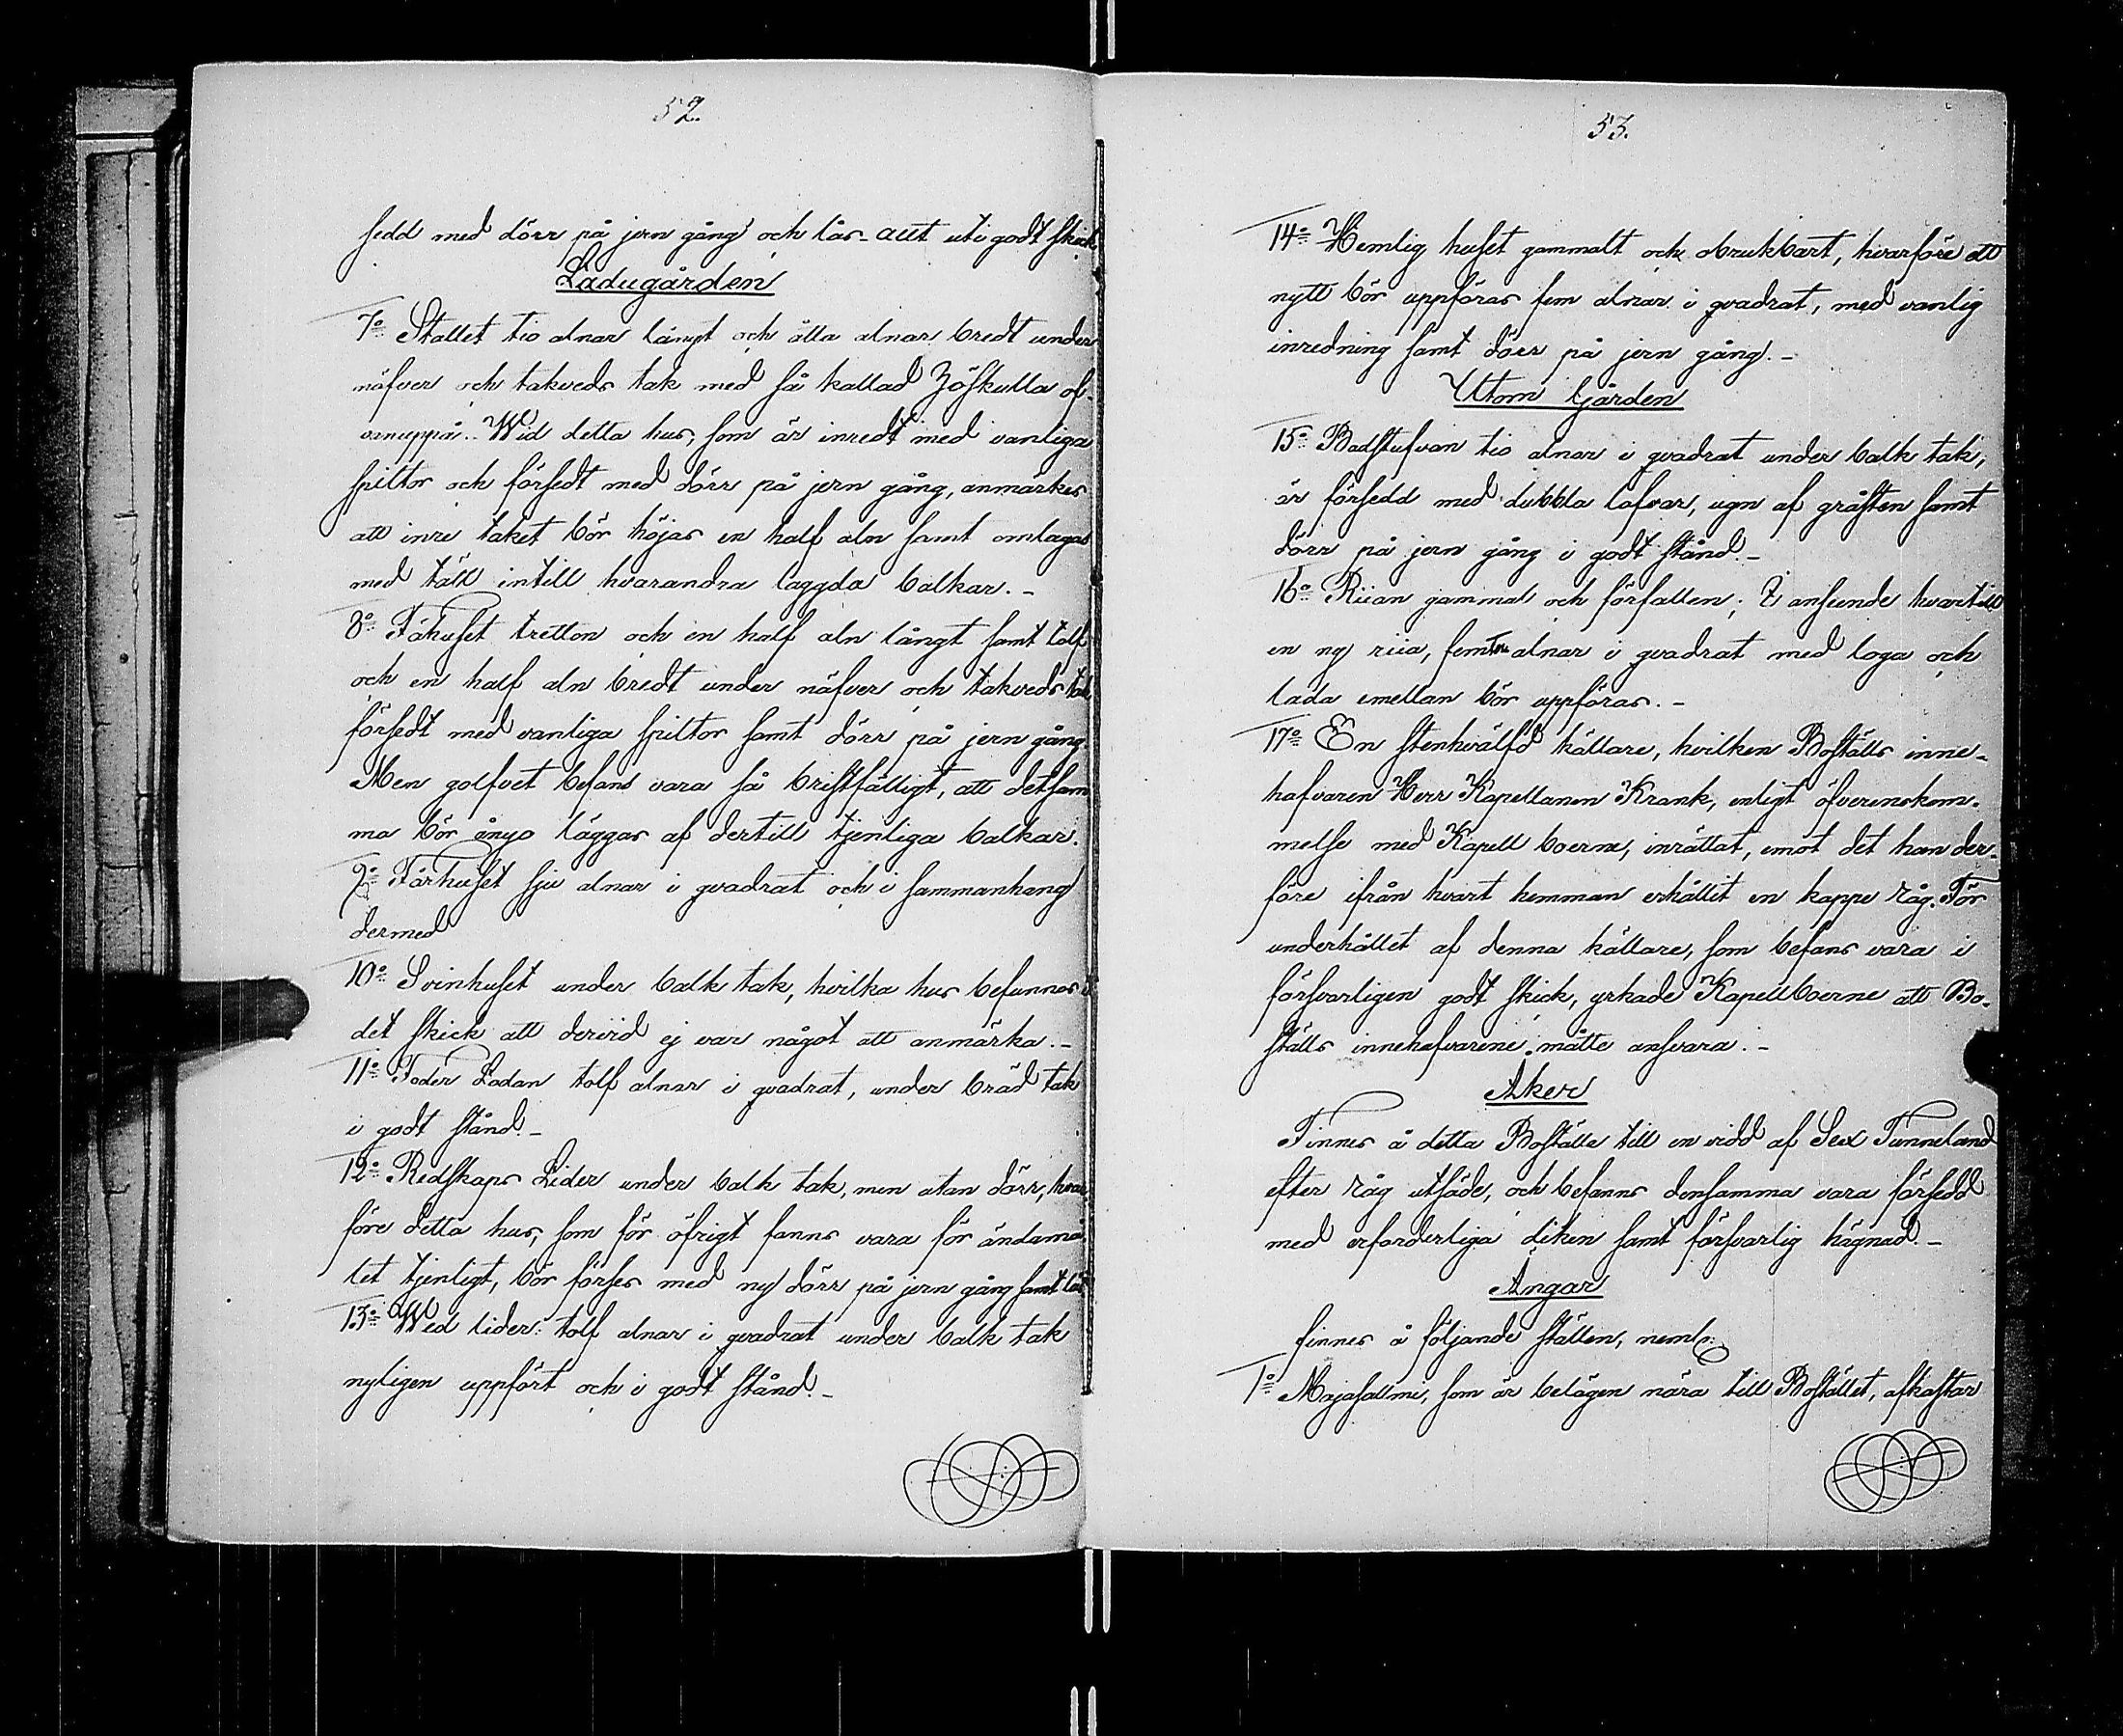 52.
sedd med dörr på jern gång och lås – allt uti godt skick.
Ladugården
7:o Stallet tio alnar långt och åtta alnar bredt under
näfver och takveds tak med så kallad Höskulla of-
vanuppå. Wid detta hus, som är inredt med vanliga
spiltor och försedt med dörr på jern gång, anmärkes
att inre taket bör höjas en half aln samt omlagas
med tätt intill hvarandra laggda balkar. –
8:o Fähuset tretton och en half aln långt samt tolf
och en half aln bredt under näfver och takveds tak,
försedt med vanliga spiltor samt dörr på jern gång.
Men golfvet befans vara så bristfälligt, att detsam
ma bör ånyo läggas af dertill tjenliga balkar.
9:o Fårhuset sju alnar i qvadrat och i sammanhang
dermed
10:o Svinhuset under balk tak, hvilka hus befunnos i
det skick att dervid ej var något att anmärka. –
11:o Foder Ladan tolf alnar i qvadrat, under bräd tak
i godt stånd. –
12:o Redskaps Lider under balk tak, men utan dörr, hvar
före detta hus, som för öfrigt fanns vara för ändamå
let tjenligt, bör förses med ny dörr på jern gång samt lås
13:o Wed lider: tolf alnar i qvadrat under balk tak
nyligen uppfört och i godt stånd. –
53.
14:o Hemlig huset gammalt och obrukbart, hvarföre ett
nytt bör uppföras fem alnar i qvadrat, med vanlig
inredning samt dörr på jern gång. –
Utom Gården
15:o Badstufvan tio alnar i qvadrat under balk tak,
är försedd med dubbla lafvar, ugn af gråsten samt
dörr på jern gång i godt stånd. –
16:o Riian gammal och förfallen; I anseende hvartill
en ny riia, femton alnar i qvadrat med loga och
lada emellan bör uppföras. –
17:o En stenhvälfd källare, hvilken Boställs inne-
hafvaren Herr Kapellanen Krank, enligt öfverenskom-
melse med Kapell boerne, inrättat, emot det han der-
före ifrån hvart hemman erhållit en kappe råg. För
underhållet af denna källare, som befans vara i
försvarligen godt skick, yrkade Kapellboerne att Bo-
ställs innehafvarene måtte ansvara. –
Åker
Finnes å detta Boställe till en vidd af Sex Tunneland
efter råg utsäde, och befanns densamma vara försedd
med erforderliga diken samt försvarlig hägnad. –
Ängar
finnes å följande ställen, neml:
1:o Majasallmi, som är belägen nära till Bostället, afkastar